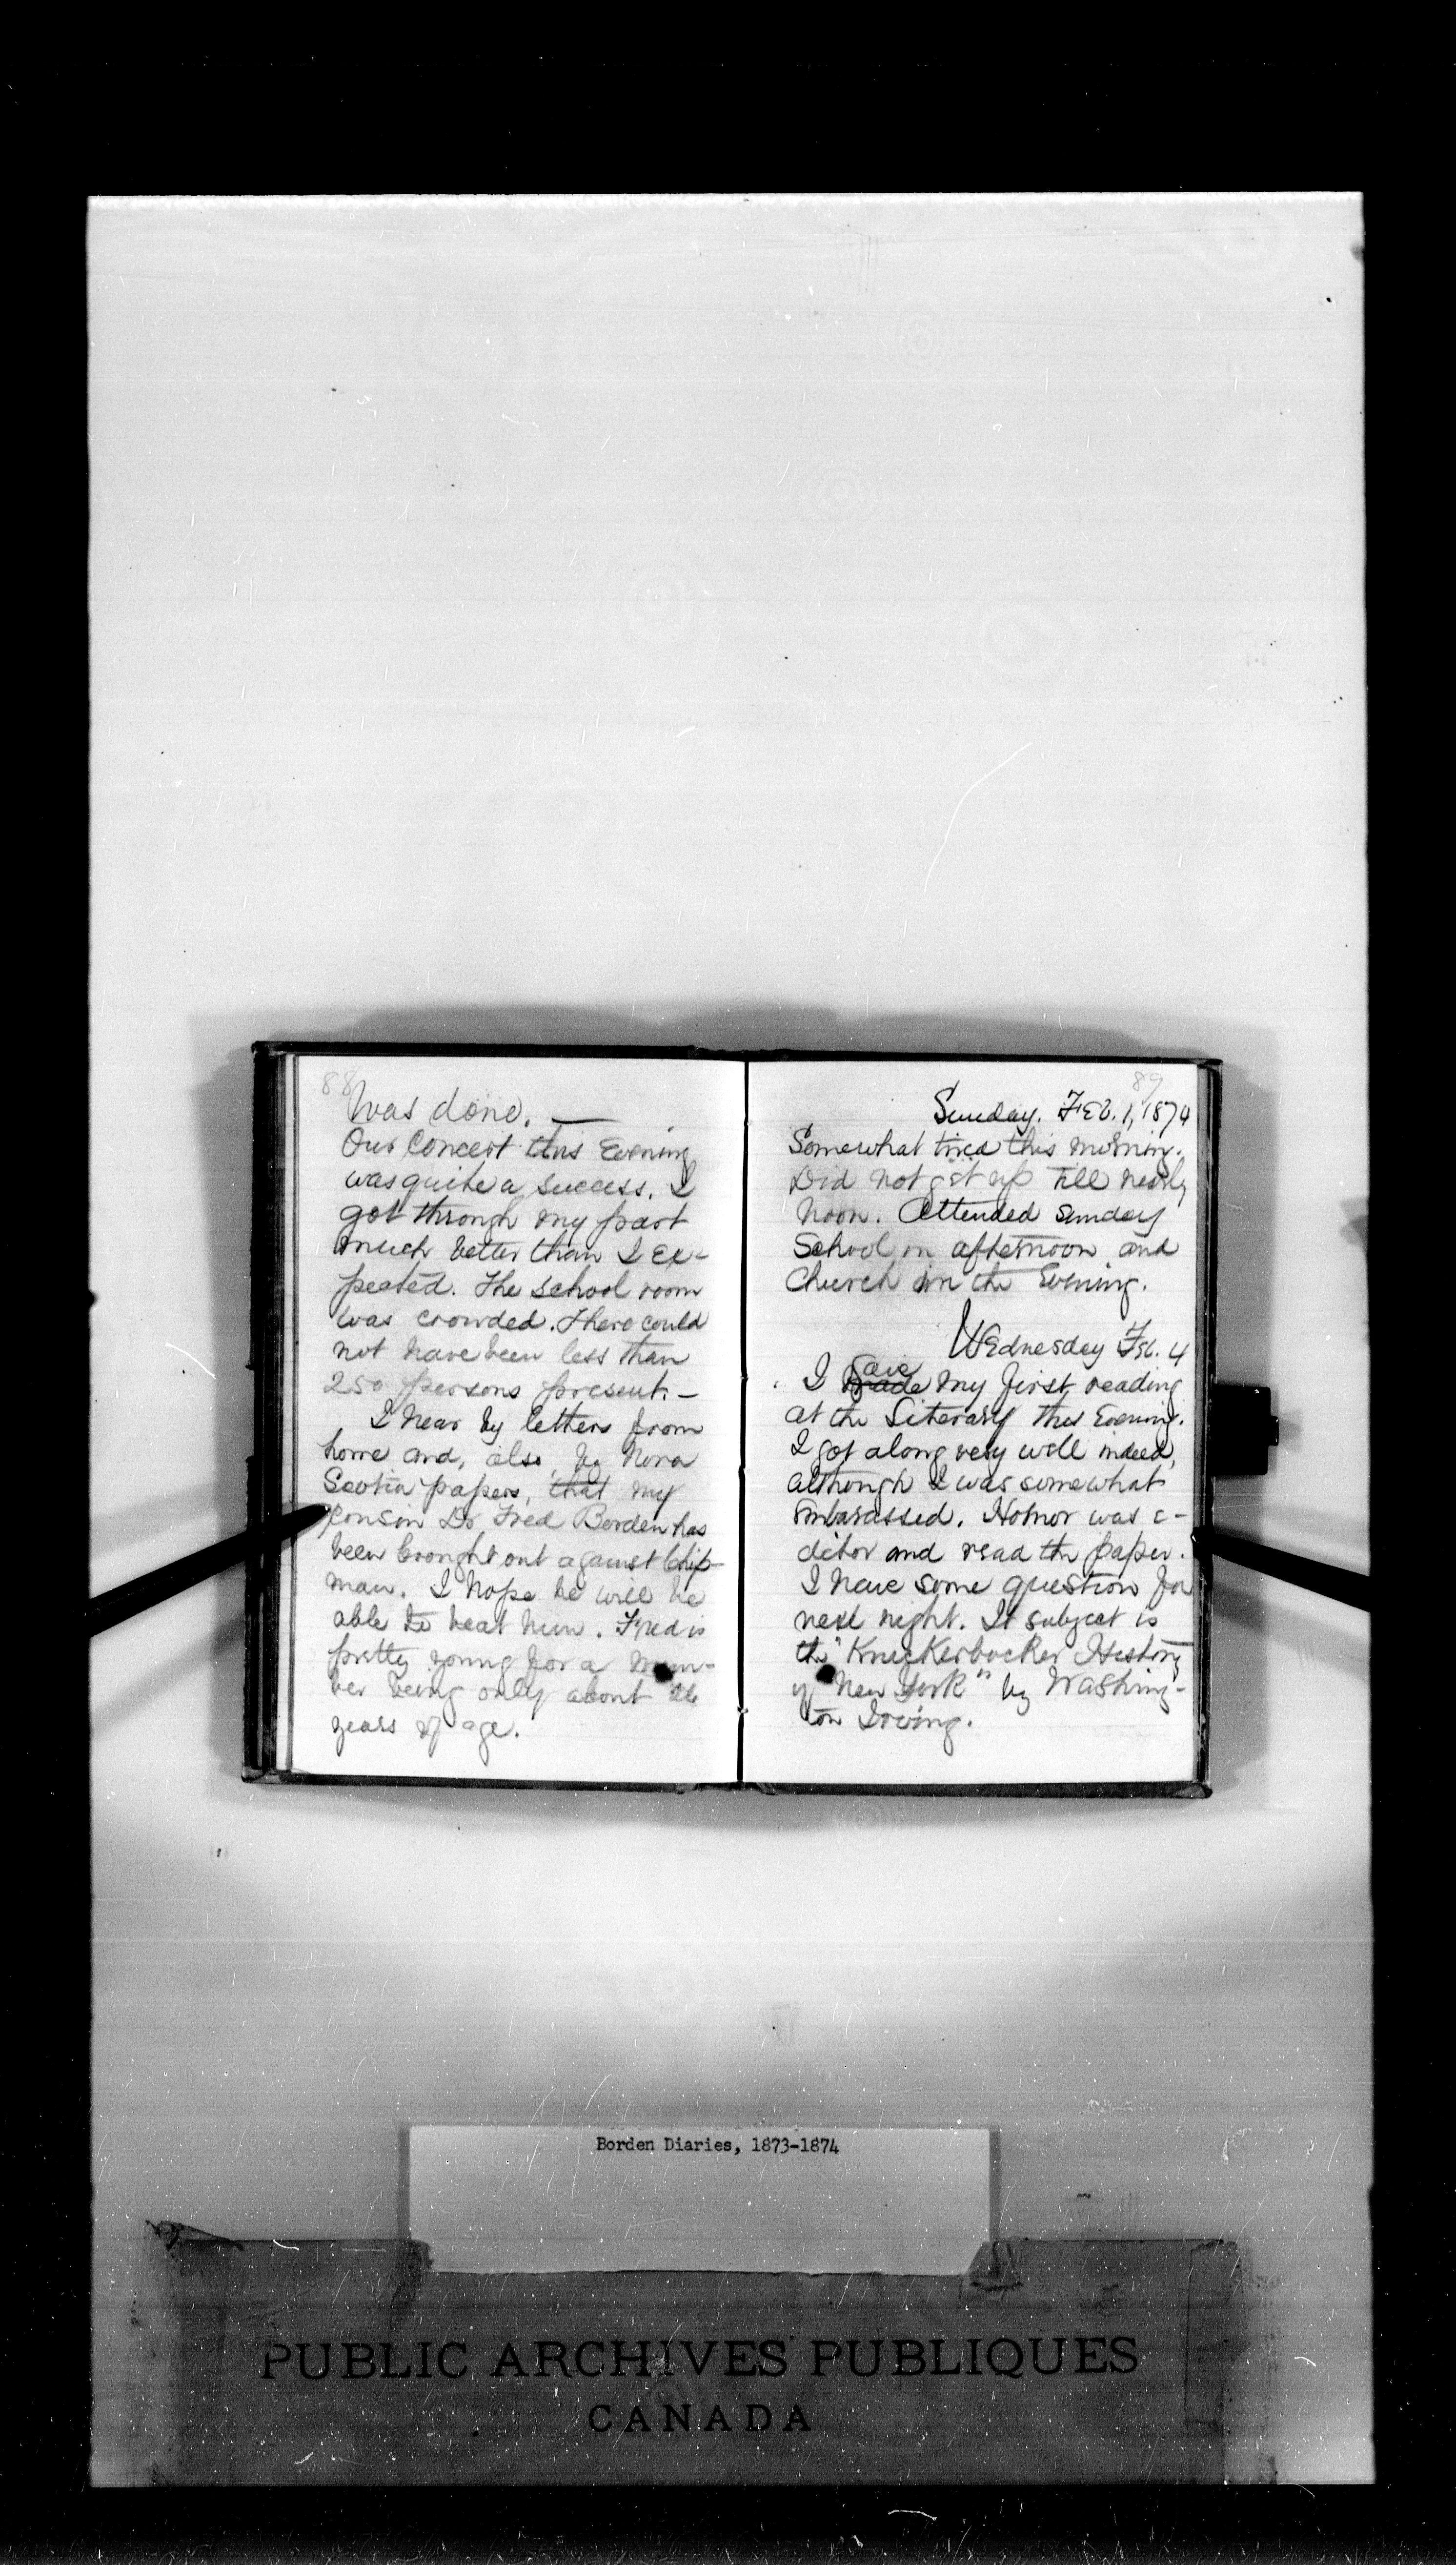 88
was done. —
Our Concert this Evening
was quite a success. I
got through my part
much better than I ex-
pected. The school room
was crowded. There could
not have been less than
250 persons present. —
I hear by letters from
home and, also, by Nova
Scotia papers, that my
Cousin Dr Fred Borden has
been brought out against Chip-
man. I hope he will be
able to beat him. Fred is
pretty young for a mem-
ber being only about 26
years of age.
89
Sunday. Feb. 1, 1874
Somewhat tired this morning.
Did not get up till nearly
noon. Attended Sunday
School in afternoon and
Church in the Evening.
Wednesday Feb. 4
I made my first reading
at the Literary this Evening.
I got along very well indeed,
although I was somewhat
embarassed. Homer was e-
ditor and read the paper.
I have some question for
next night. It subject is
the "Knickerbocker History
of New York" by Washing-
ton Irving.
Borden Diaries, 1873-1874
PUBLIC ARCHIVES PUBLIQUES
CANADA